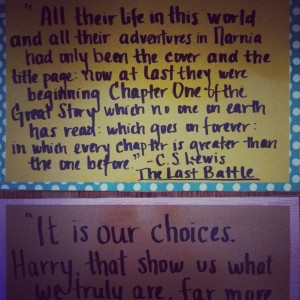 "All their life in this world
and all their adventures in Narnia
had only been the cover and the
title page: now at last they were
beginning Chapter One of the
Great Story which no one on earth
has read: which goes on forever:
in which every chapter is greater than
the one before." -C.S. Lewis
The Last Battle
"It is our choices,
Harry, that show us what
we truly are, far more